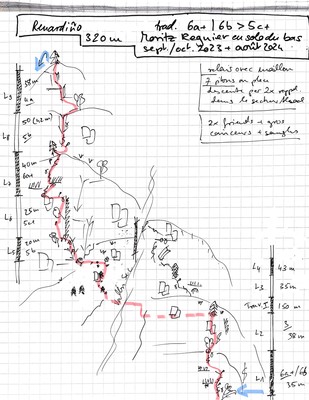 Renardiño
320 m
trad. 6a+ | 6b > 5c+
Moritz Requier en solo du bas
sept./oct. 2023 + août 2024
relais avec maillon
7 pitons en place
descente par 2x rappel
dans le secteur
2x friends + gros
coinceurs + sangles
L9
38m
4a
L8
50 (42m)
5b
L7
40m
6a+
L6
25m
5c+
L5
20m
5b
L4 43m
L3 35m
Trav. I. 150m
L2 3
38m
L1 6a+/6b
35m